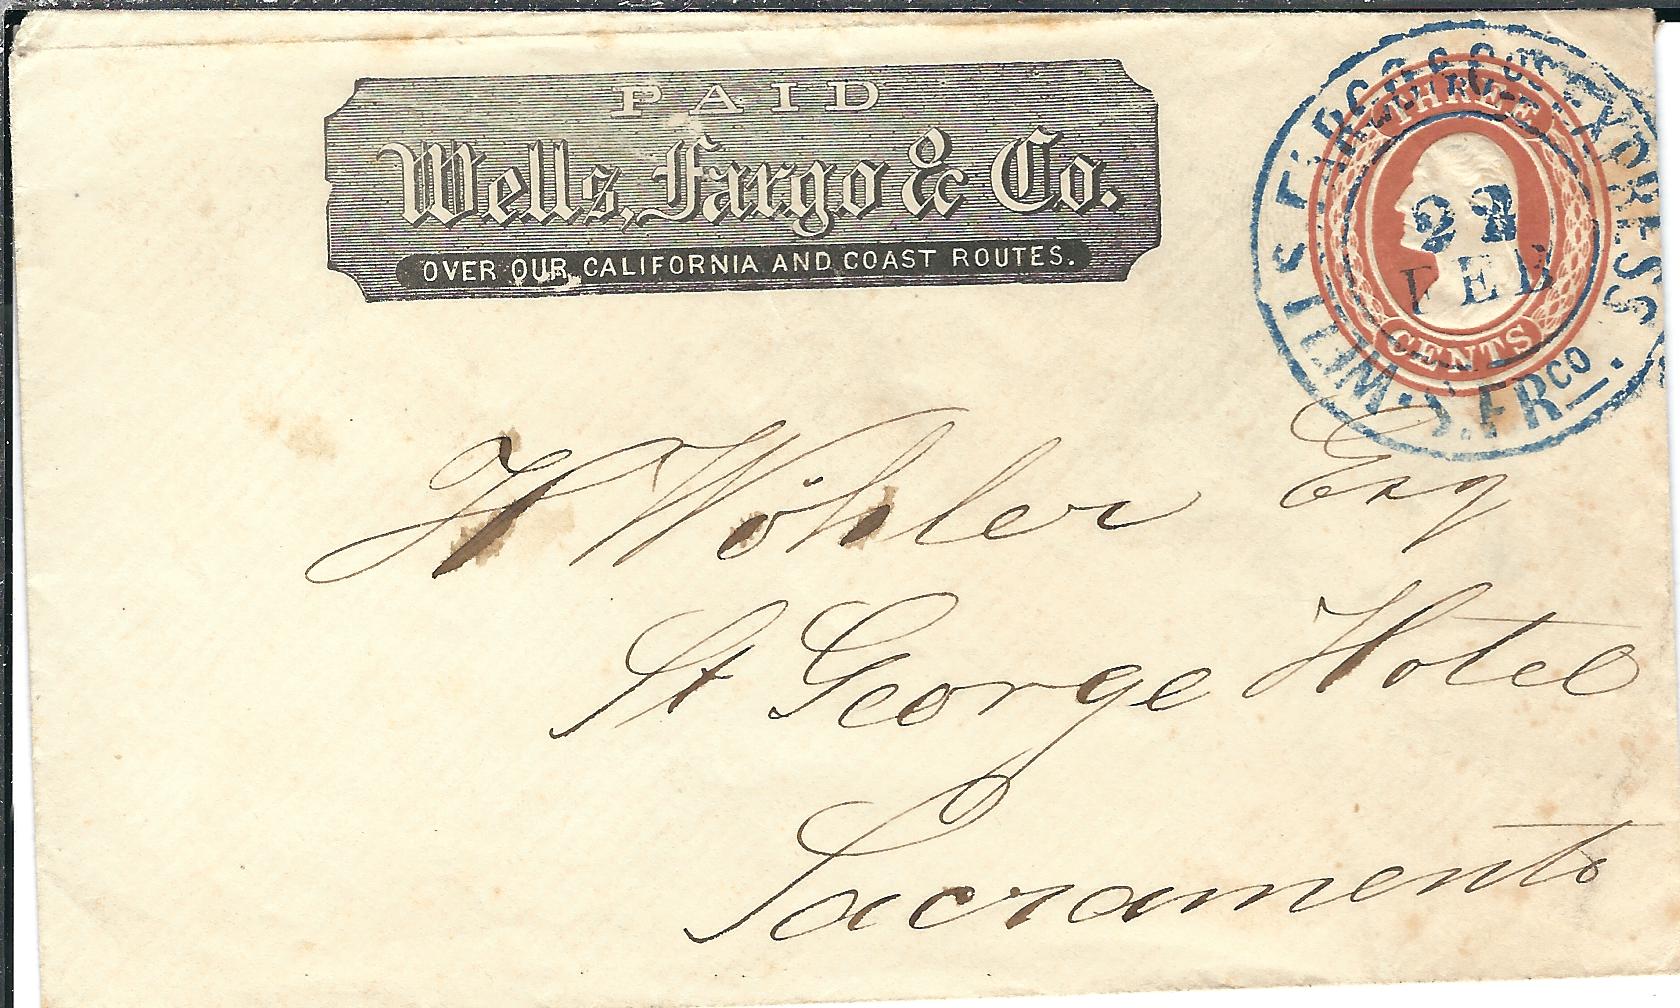 PAID
Wells, Fargo & Co.
OVER OUR CALIFORNIA AND COAST ROUTES.
THREE
CENTS
WELLS FARGO & CO'S EXPRESS
22
FEB
S. FRCO.
H Wöhler Esq
St George Hotel
Sacramento